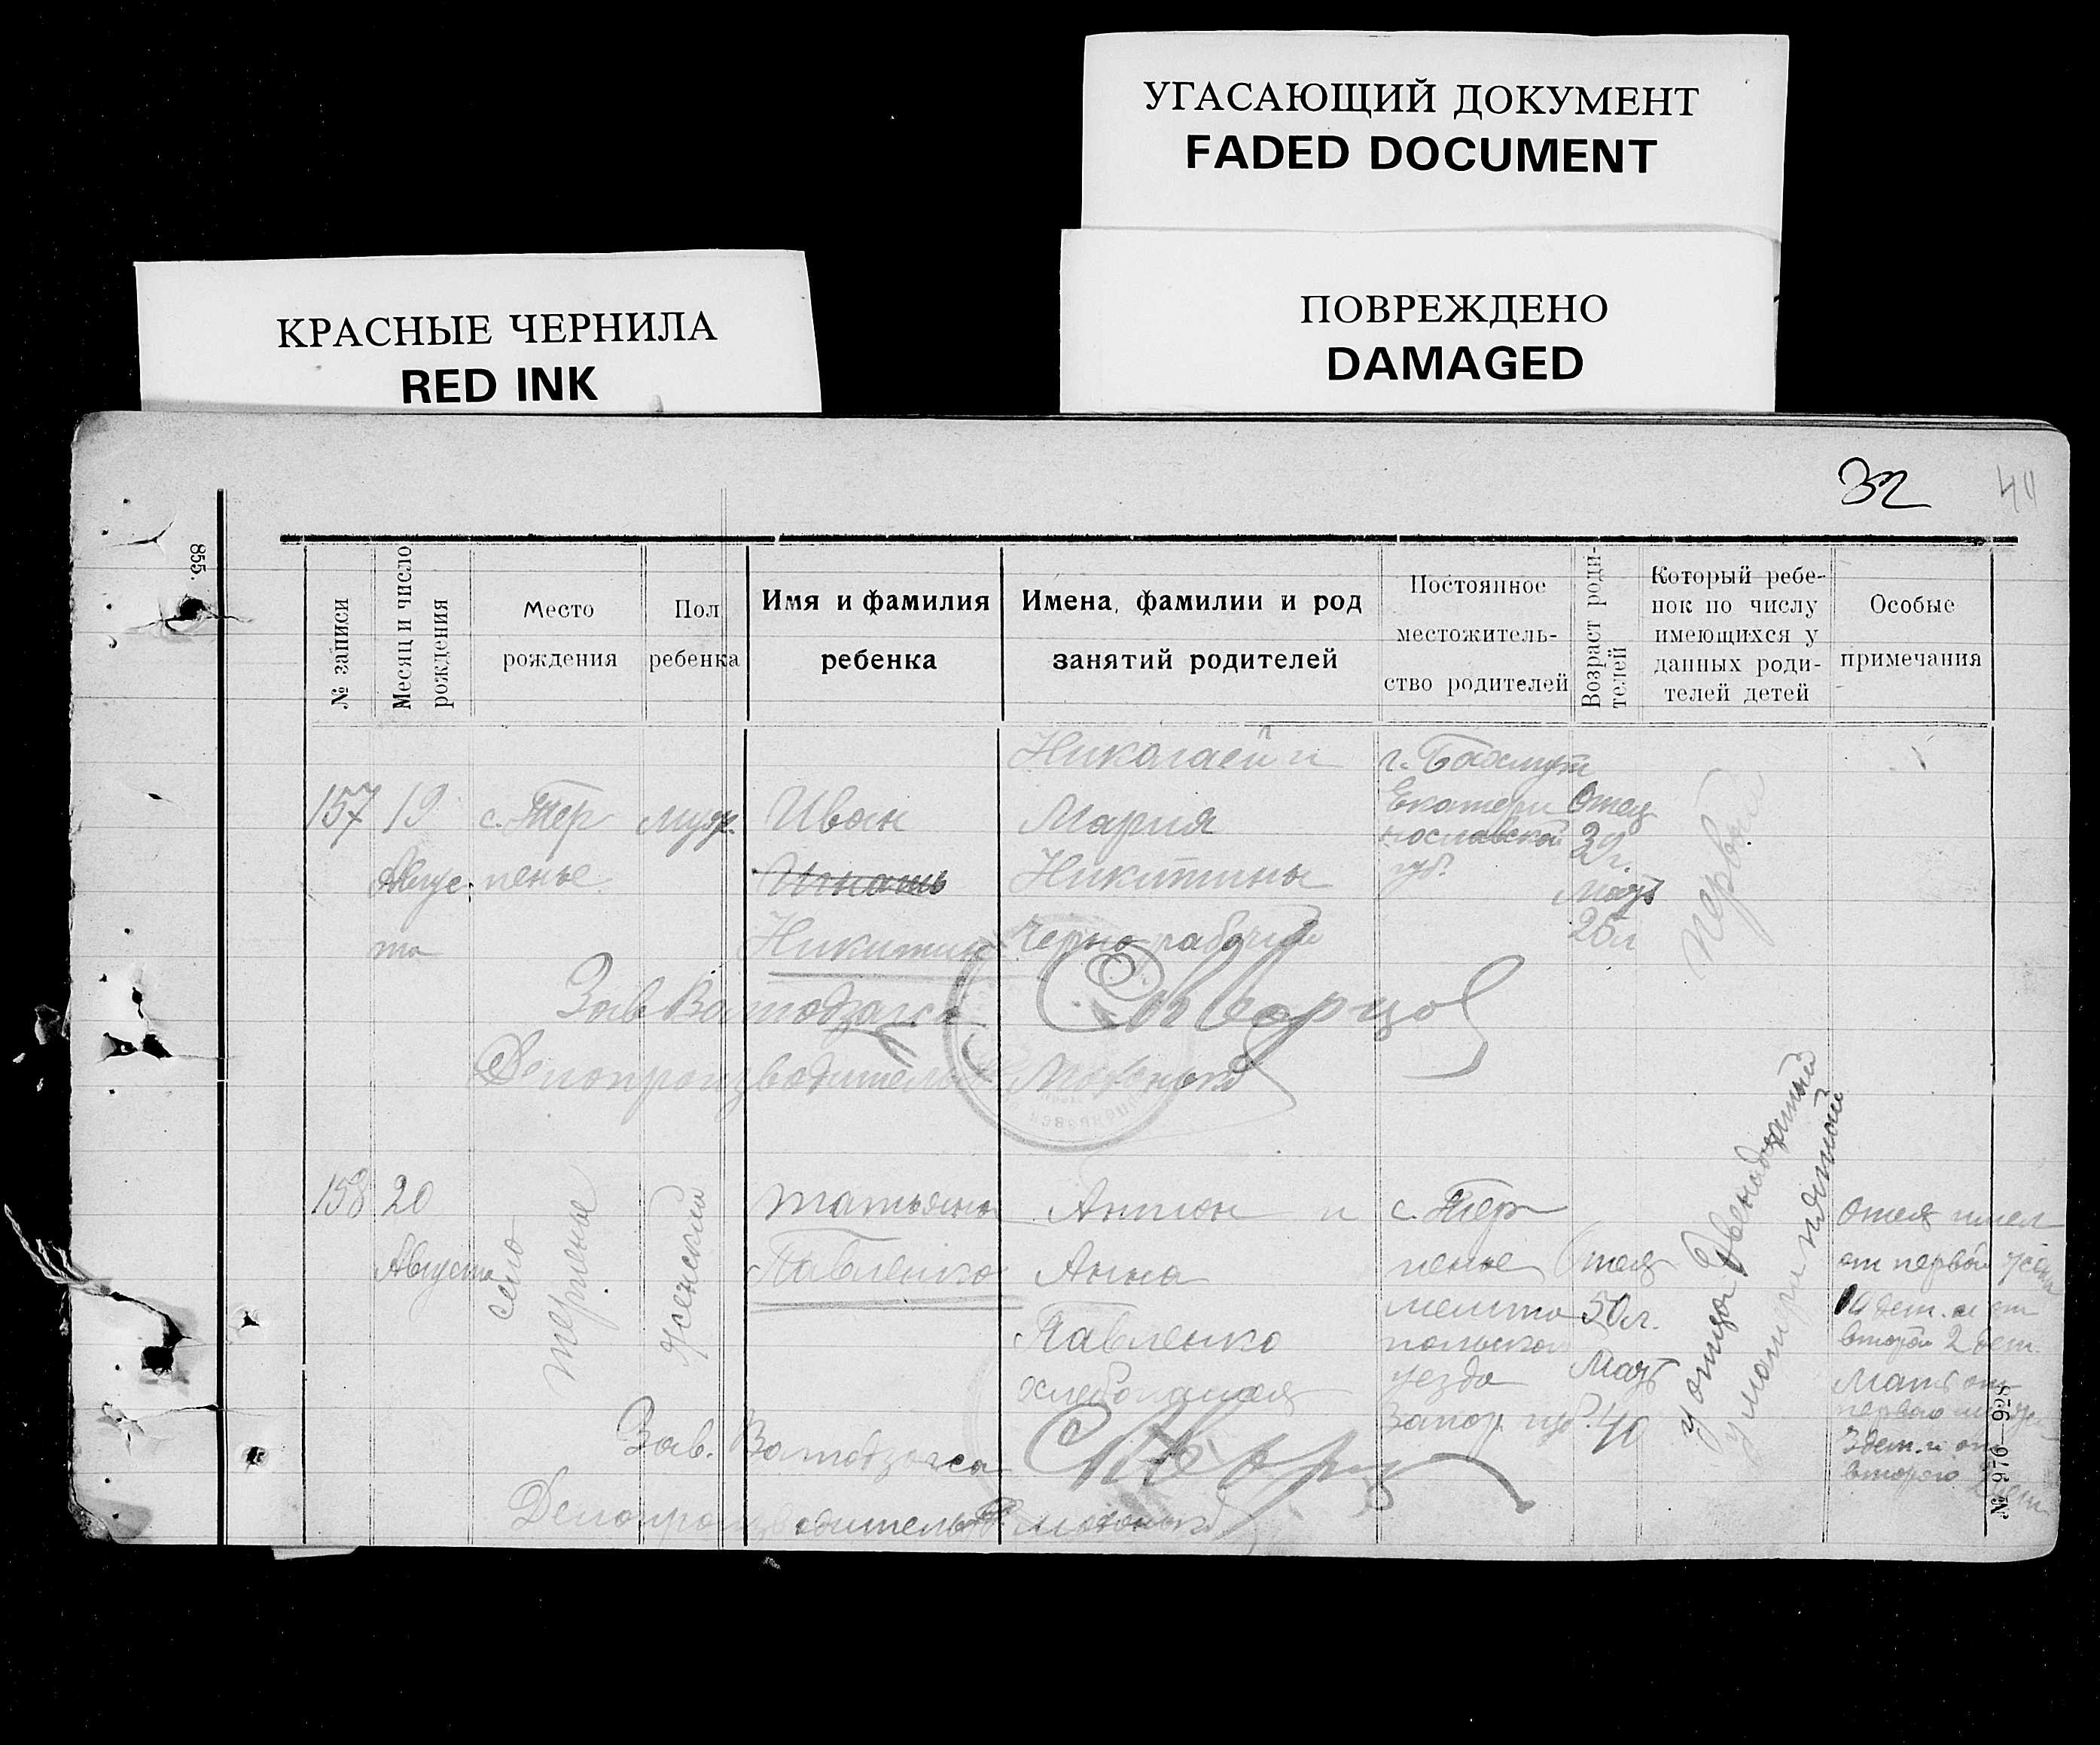 УГАСАЮЩИЙ ДОКУМЕНТ
FADED DOCUMENT
ПОВРЕЖДЕНО
DAMAGED
КРАСНЫЕ ЧЕРНИЛА
RED INK
32
855.
№ записи
Месяц и число
рождения
Место
рождения
Пол
ребенка
Имя и фамилия
ребенка
Имена, фамилии и род
занятий родителей
Постоянное
местожитель-
ство родителей
Возраст роди-
телей
Который ребе-
нок по числу
имеющихся у
данных роди-
телей детей
Особые
примечания
157
19
Авгус
та
с. Тер
пенье
муж.
Иван
Игнать
Никитин
Николаей и
Мария
Никитины
Чернорабочий
г. Бахмут
Екатери
нославской
губ.
Отец
Мать
26 л
первый
Зав
Делопроизводитель
158
20
Августа
село
терпенье
женский
татьяна
Павленко
Антон и
Анна
Павленко
с. Тер
пенье
мелито
польского
уезда
Запор. губ.
Отец
50 л.
Мать
40
У отца Двенадцатый
у матери пятый
отец имел
от первой жены
10 дет. и от
второй 2 дет.
Мать от
первого
3 дет. и от
второго
Зав.
Делопроизводитель
№ 976—928